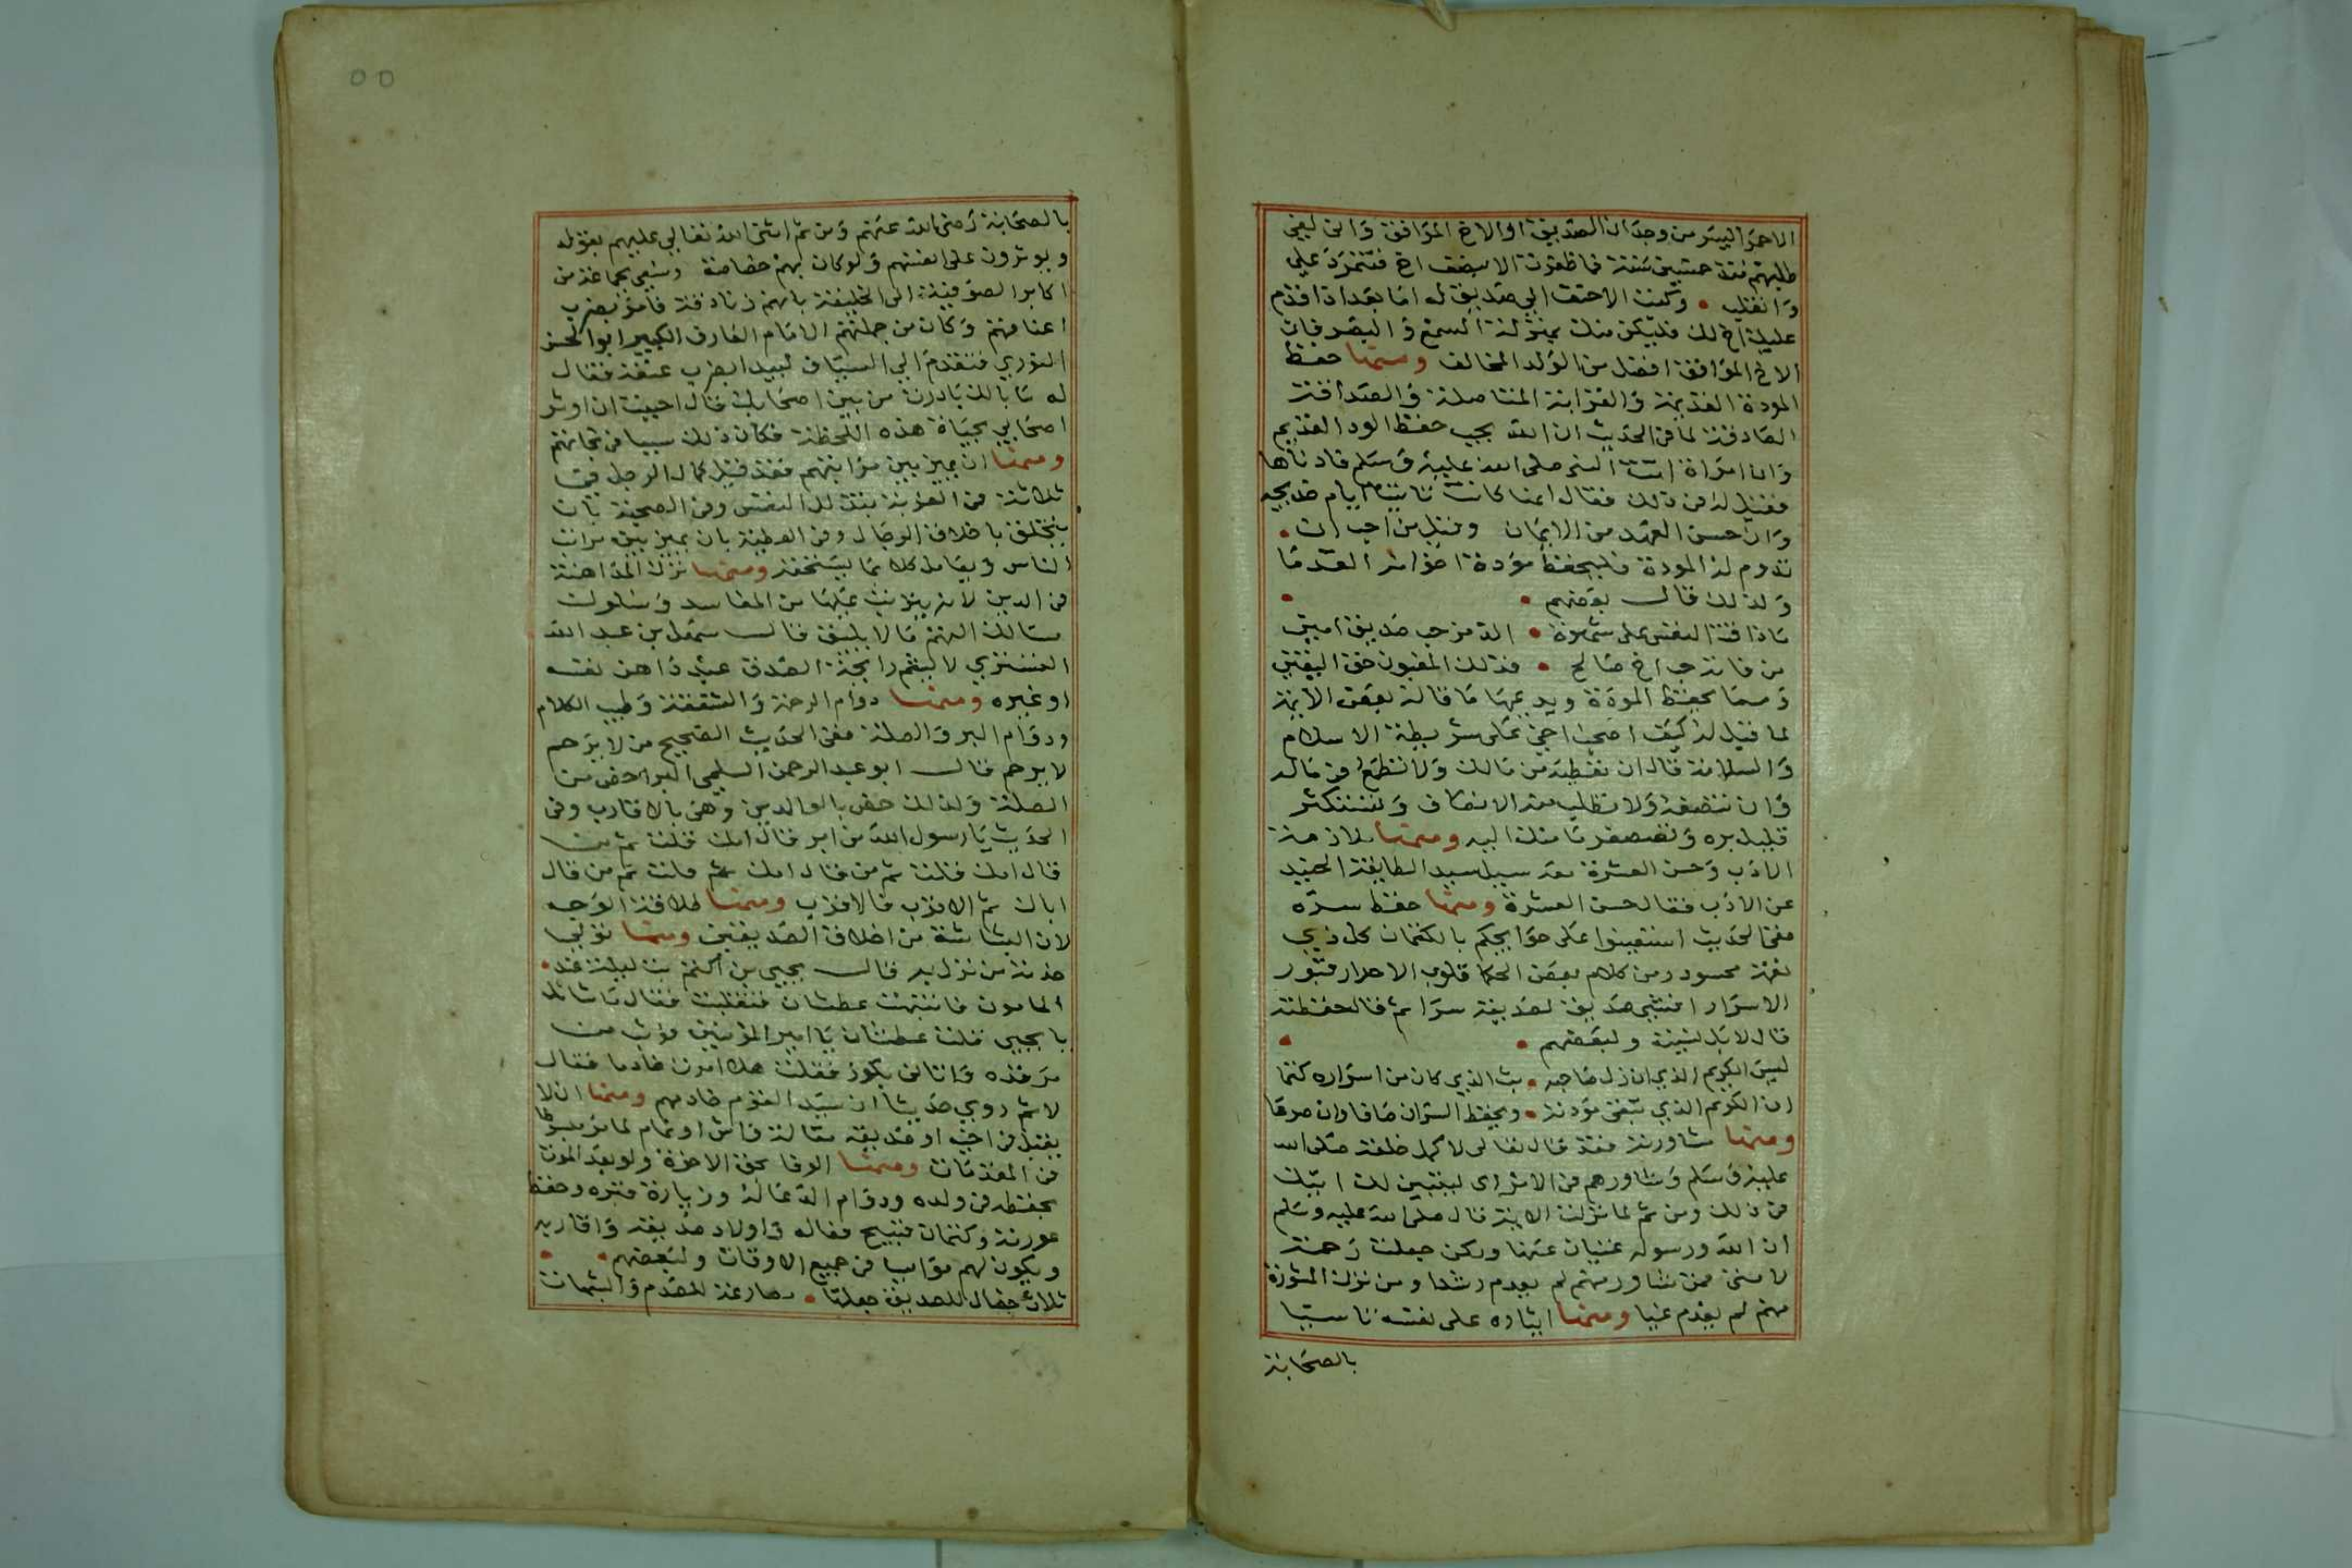 الاحمر اليسر من وجدان الصديق او الاخ الموافق واني لفي
طلبهم منذ خمسين سنة فما ظفرت الا بنصف اخ فتمرد علي
وانقلب • وكتب الاحنف الي صديق له اما بعد اذا قدم
عليك اخ لك فليكن منك بمنزلة السمع والبصر فان
الاخ الموافق افضل من الولد المخالف ومنها حفظ
المودة القديمة والقرابة المتاصلة والصداقة
الصادقة لما في الحديث ان الله يحب حفظ الود القديم
وان امراة اتت النبي صلى الله عليه وسلم فادناها
فقيل له في ذلك فقال انها كانت تاتينا ايام خديجه
وان حسن العهد من الايمان وقيل من احب ان •
تدوم له المودة فليحفظ مودة اخوانه القدما
ولذلك قال بعضهم • •
ما ذاقت النفس على شهوة • الذ من حب صديق امين
من فاته حب اخ صالح • فذلك المغبون حق اليقين
ومما يحفظ المودة ويديمها ما قاله بعض الايمة
لما قيل له كيف اصحب اخي على شريطة الاسلام
والسلامة قال ان تعطيه من مالك ولا تطمع في ماله
وان تنصفه ولا تطلب منه الانصاف وتستكثر
قليل بره وتستصغر ما منك اليه ومنها ملازمة
الادب وحسن العشرة معه سيل سيد الطايفة الجنيد
عن الادب فقال حسن العشرة ومنها حفظ سره
ففي الحديث استعينوا على حوايجكم بالكتمان كل ذي
نعمة محسود ومن كلام بعض الحكما قلوب الاحرار قبور
الاسرار افشى صديق لصديقه سرا ثم قال حفظته
قال لا بل نسيته ولبعضهم • •
ليس الكريم الذي ان زل صاحبه • بث الذي كان من اسراره كتما
ان الكريم الذي تبقى مودته • ويحفظ السر ان صافا وان صرما
ومنها مشاورته فقد قال تعالى لاكمل خلقه صلى الله
عليه وسلم وشاورهم في الامر اى ليتبين لك
في ذلك ومن ثم لما نزلت الاية قال صلى الله عليه وسلم
ان الله ورسوله غنيان عنها ولكن جعلت رحمة
لامتي فمن شاور منهم لم يعدم رشدا ومن ترك المشورة
منهم لم يعدم غيا ومنها ايثاره على نفسه تاسيا
بالصحابة
بالصحابة رضى الله عنهم ومن ثم اثنى الله تعالي عليهم بقوله
ويوثرون على انفسهم ولو كان بهم خصاصة وسعي بجماعة من
اكابر الصوفية الى الخليفة بانهم زنادقة فامر بضرب
اعناقهم وكان من جملتهم الامام العارف الكبير ابو الحسن
النوري فتقدم الي السياف ليبدا بضرب عنقه فقال
له ما بالك بادرت من بين اصحابك قال احببت ان اوثر
اصحابي بحياة هذه اللحظة فكان ذلك سببا في نجاتهم
ومنها ان يميز بين مراتبهم فقد قيل كمال الرجل في
ثلاثة في الغربة بتذلل النفس وفي الصحبة بان
يتخلق باخلاق الرجال وفي العطية بان يميز بين مراتب
الناس ويعامل كلا بما يستحقه ومنها ترك المداهنة
في الدين لانه يترتب عليها من المفاسد وسلوك
مسالك التهم ما لا يليق قال سهل بن عبد الله
التستري لا يشم رايحة الصدق عبد داهن نفسه
او غيره ومنها دوام الرحمة والشفقة وطيب الكلام
ودوام البر والصلة ففي الحديث الصحيح من لا يرحم
لا يرحم قال ابو عبد الرحمن السلمي البر اخص من
الصلة ولذلك خص بالوالدين وهي بالاقارب وفي
الحديث يا رسول الله من ابر قال امك قلت ثم من
قال امك قلت ثم من قال امك ثم قلت ثم من قال
اباك ثم الاقرب فالاقرب ومنها طلاقة الوجه
لان البشاشة من اخلاق الصديقين ومنها تولي
خدمة من نزل به قال يحيي بن اكثم بت ليلة عند •
المامون فانتبهت عطشان فتقلبت فقال ما شانك
يا يحيي قلت عطشان يا امير المؤمنين فوثب من
مرقده واتاني بكوز فقلت هلا امرت خادما فقال
لا ثم روي حديثا ان سيد القوم خادمهم ومنها ان لا
يقبل في اخيه او صديقه مقالة فاش او نمام لما
في المقدمات ومنها الوفا بحق الاخوة ولو بعد الموت
بحفظه في ولده ودوام الدعا له وزيارة قبره وحفظ
عورته وكتمان قبيح فعاله واولاد صديقه واقاربه
ويكون لهم مواسيا في جميع الاوقات ولبعضهم • •
ثلاث خصال للصديق جعلتها • مضارعة للصوم والصلوات